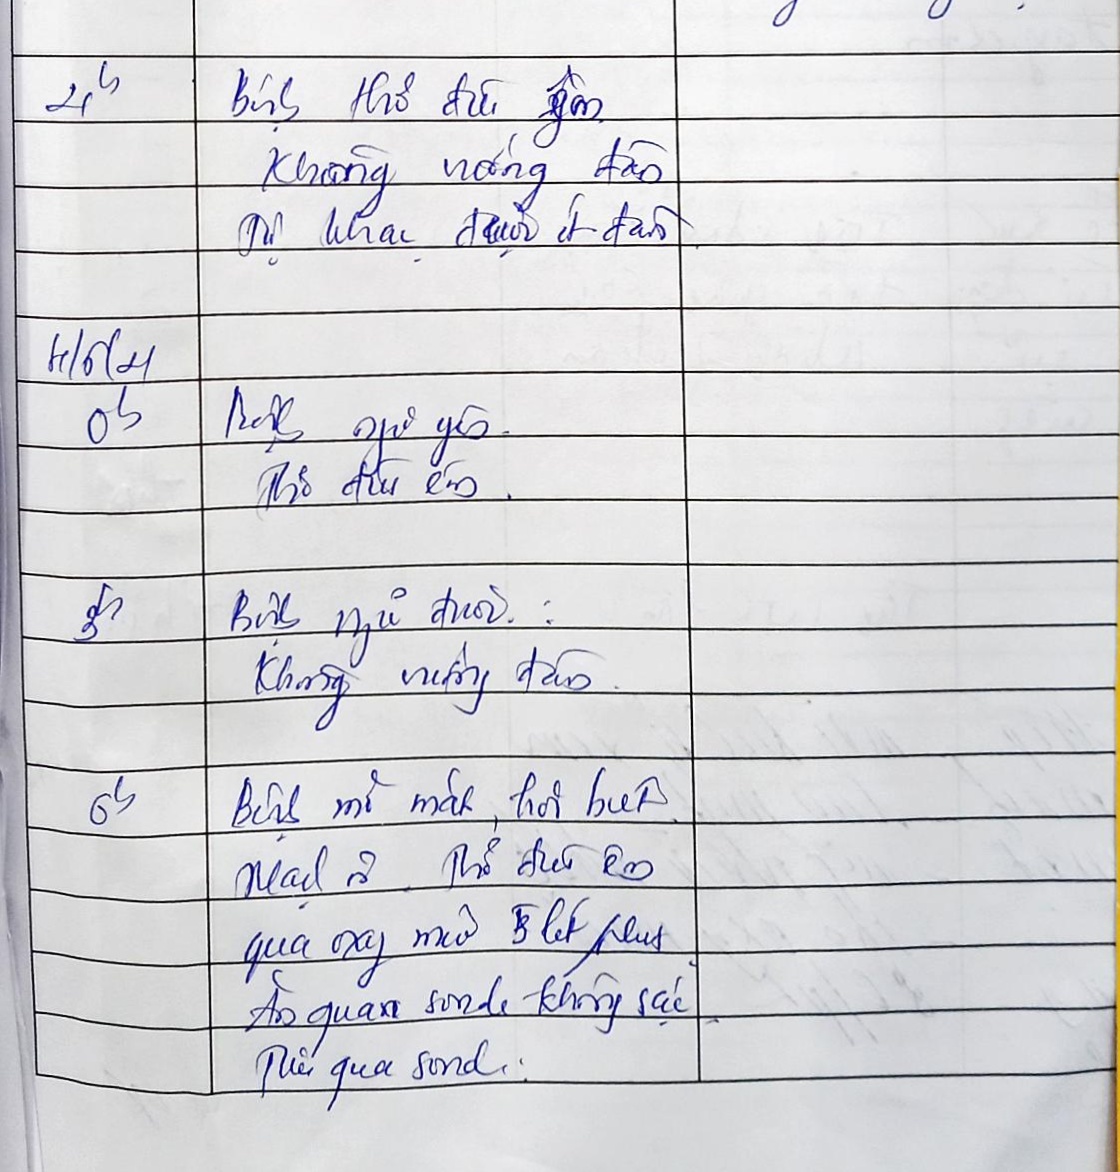 21h
Bệnh thở đều êm
Không vướng đàm
Tự khạc được ít đàm
4/5/21
0h
Bệnh ngủ yên.
Thở đều êm.
3h
Bệnh ngủ được.
Không vướng đàm.
6h
Bệnh mở mắt, hơi biết.
Mạch rõ. Thở đều êm
qua oxy mũi 5 lít/phút
Ăn quan sonde không sặc.
Tiểu qua sond.